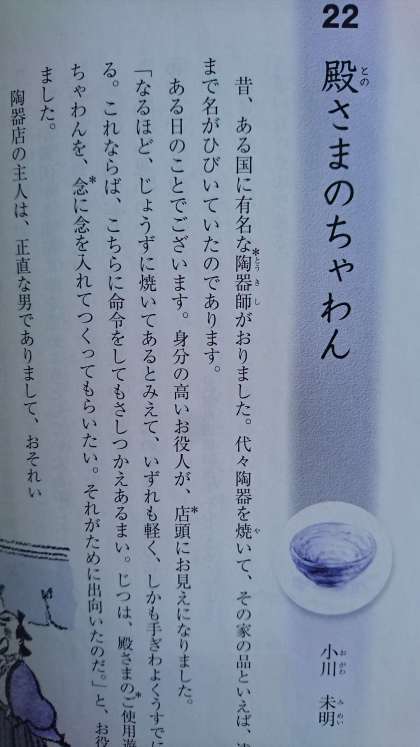 22
殿さまのちゃわん
との
小川 未明
おがわ みめい
昔、ある国に有名な*陶器師がおりました。代々陶器を焼いて、その家の品といえば、遠
とうきし
や
まで名がひびいていたのであります。
ある日のことでございます。身分の高いお役人が、店頭*にお見えになりました。
「なるほど、じょうずに焼いてあるとみえて、いずれも軽く、しかも手ぎわよくうすでに
る。これならば、こちらに命令をしてもさしつかえあるまい。じつは、殿さまのご使用遊*
ちゃわんを、念*に念を入れてつくってもらいたい。それがために出向いたのだ。」と、お役
ました。
陶器店の主人は、正直な男でありまして、おそれい